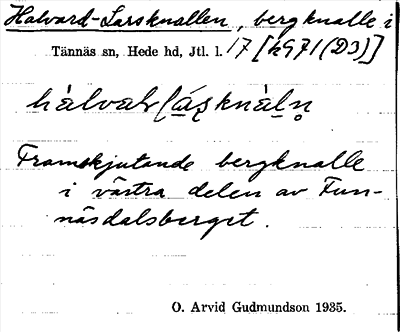 Halvard-Larsknallen, bergknalle i
Tännäs sn, Hede hd, Jtl. l. 17 [hg71(D3)]
Framskjutande bergknalle
i västra delen av Fun-
näsdalsberget.
O. Arvid Gudmundson 1935.